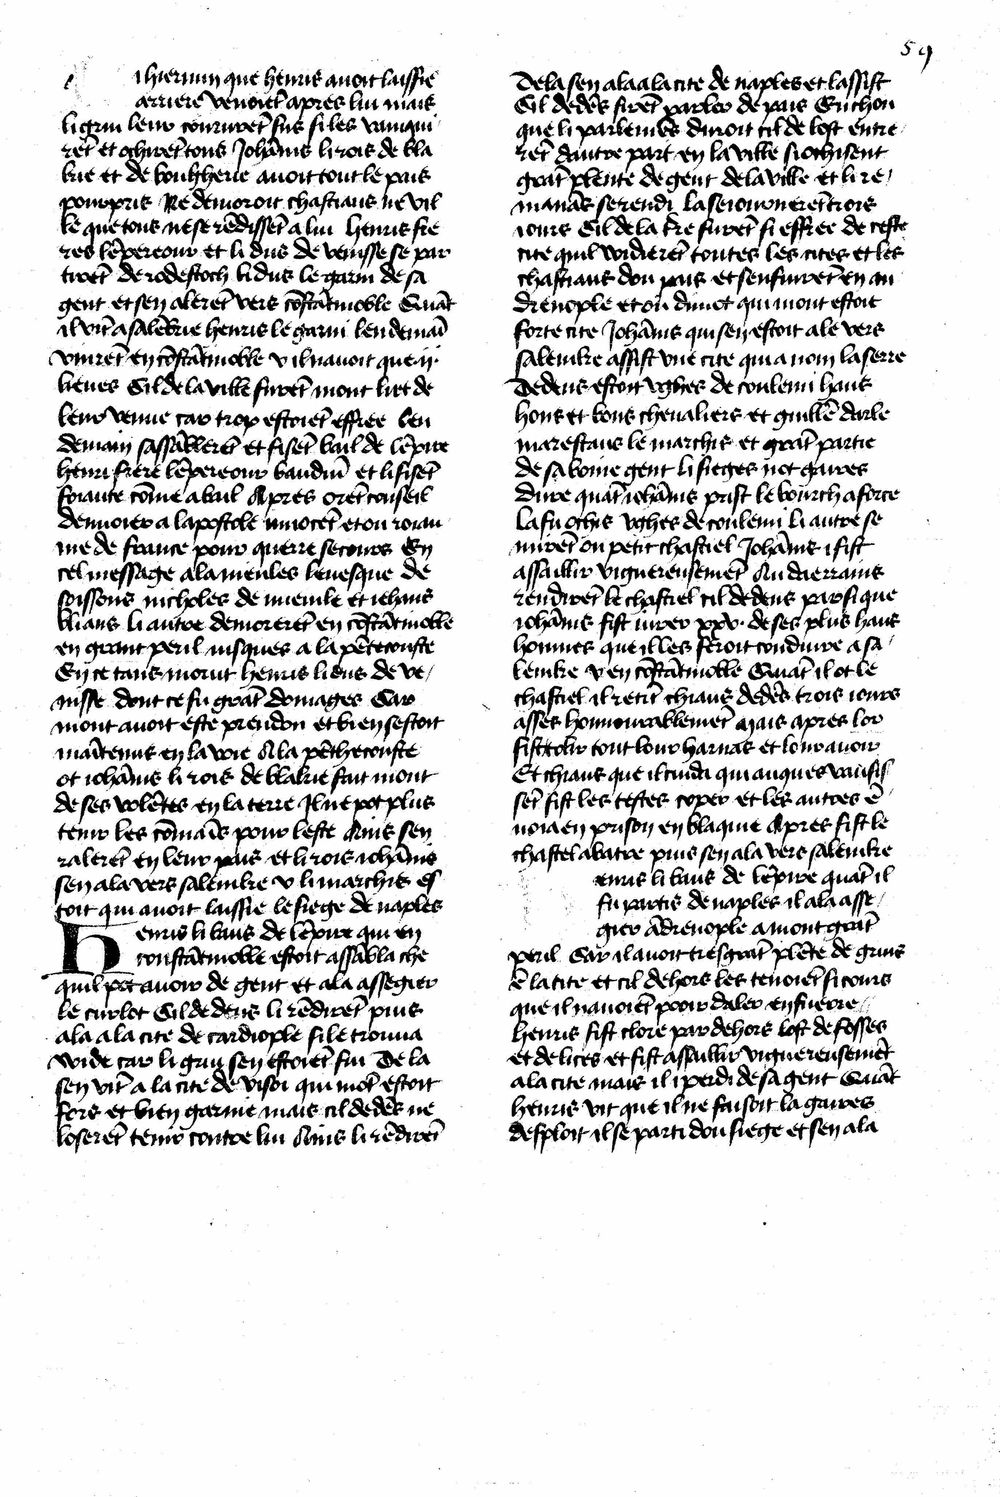 59
i hiermin que henris auoit laissie
arriere venoiẽt apres lui mais
li griu leur coururẽt sus si les vainqui
rẽt et ochirẽt tous Johãnis li rois de bla
kie et de bougherie auoit tout le pais
pourpris Ne demoroit chastiaus ne vil
le que tous ne se rẽdissẽt a lui henris fre
res lẽpereour et li dus de venisse se par
tirẽt de rodestoch li dus le garni de sa
gent et sen alerẽt vers cõstãtinoble Quãt
il vĩt a salẽbrie henris le garni lendemaĩ
vinrẽt en cõstãtinoble v il nauoit que .ij.
lieues Cil de la ville furẽt mout liet de
leur venue car trop estoiẽt effree len
demain sassãblerẽt et fisẽt bail de lẽpire
henri frere lẽpereour bauduĩ et li fisẽt
feaute cõme a bail Apres orẽt conseil
denuoier a lapostole innocẽt et ou roiau
me de france pour querre secours En
cel message ala nieules leuesque de
soissons nicholes de mienle et iehans
bliaus li autre demorerẽt en cõstãtinoble
en grant peril iusques a la pẽtecouste
En ce tans morut henris li dus de ve
nisse dont ce fu grãt domages Car
mout auoit este preudon et bien sestoit
maĩtenus en la voie A la pẽthecouste
ot iohãnis li rois de blakie fait mout
de ses volẽtes en la terre Il ne pot plus
tenir les cõmaĩs pour leste Ains sen
ralerẽt en leur pais et li rois iohãnis
sen ala vers salenike v li marchis es
toit qui auoit laissie le siege de naples
Henris li baus de lẽpire qui en
constãtinoble estoit assãbla che
quil pot auoir de gent et ala assegier
le curlot Cil dedens li rẽdirẽt puis
ala a la cite de cardiople si le trouua
wide car li griu sen estoiẽt fui De la
sen vĩt a la cite de visoi qui mõt estoit
fors et bien garnie mais cil dedẽs ne
loserẽt tenir contre lui Ains li rẽdirẽt
De la sen ala a la cite de naples et lassist
Cil dedẽs firẽt parler de pais Enchou
que li parlemẽs duroit cil de lost entre
rẽt dautre part en la ville si ochisent
grãt plente de gent de la ville et li re
manãs se rendi La seiournerẽt trois
iours Cil de la tr̃e furẽt si effree de ceste
cite quil widierẽt toutes les cites et les
chastiaus dou pais et senfuirẽt en an
drenople et ou dimot qui mout estoit
forte cite Johãnis qui sen estoit ale vers
salenike assist vne cite qui a nom la serre
Dedens estoit vghes de coulemi haus
hons et bons cheualiers et guillẽ darle
marescaus le marchis et grãt partie
de sa bonne gent li sieges not gaires
dure quãt iohãnis prist le bourch a force
La fu ochis vghes de coulemi li autre se
mirẽt ou petit chastiel Johãnis i fist
assaillir viguereusemẽt Au daerrains
rendirẽt le chastiel cil dedens par si que
iohãnis fist iurer xxv. de ses plus haus
hommes que il les feroit conduire a sa
lenike v en cõstãtinoble Quãt il ot le
chastiel il retĩt chiaus dedẽs trois iours
asses honnourablemẽt Mais apres lor
fist tolir tout lour harnas et lour auoir
Et chiaus que il cuida qui auques vausis
sẽt fist les testes coper et les autres ẽ
uoia en prison en blaquie Apres fist le
chastel abatre puis sen ala vers salenike
enris li baus de lẽpire quãt il
fu partis de naples il ala asse
gier ãdrenople a mout grãt
peril Car il auoit tres grãt plẽte de grius
ẽ la cite et cil dehors les tenoiẽt si cours
que il nauoiẽt pooir daler en fuerre
henris fist clore par dehors lost de fosses
et de lices et fist assaillir viguereusemẽt
a la cite mais il i perdi de sa gent Quãt
henris vit que il ne faisoit la gaires
desploit il se parti dou siege et sen ala